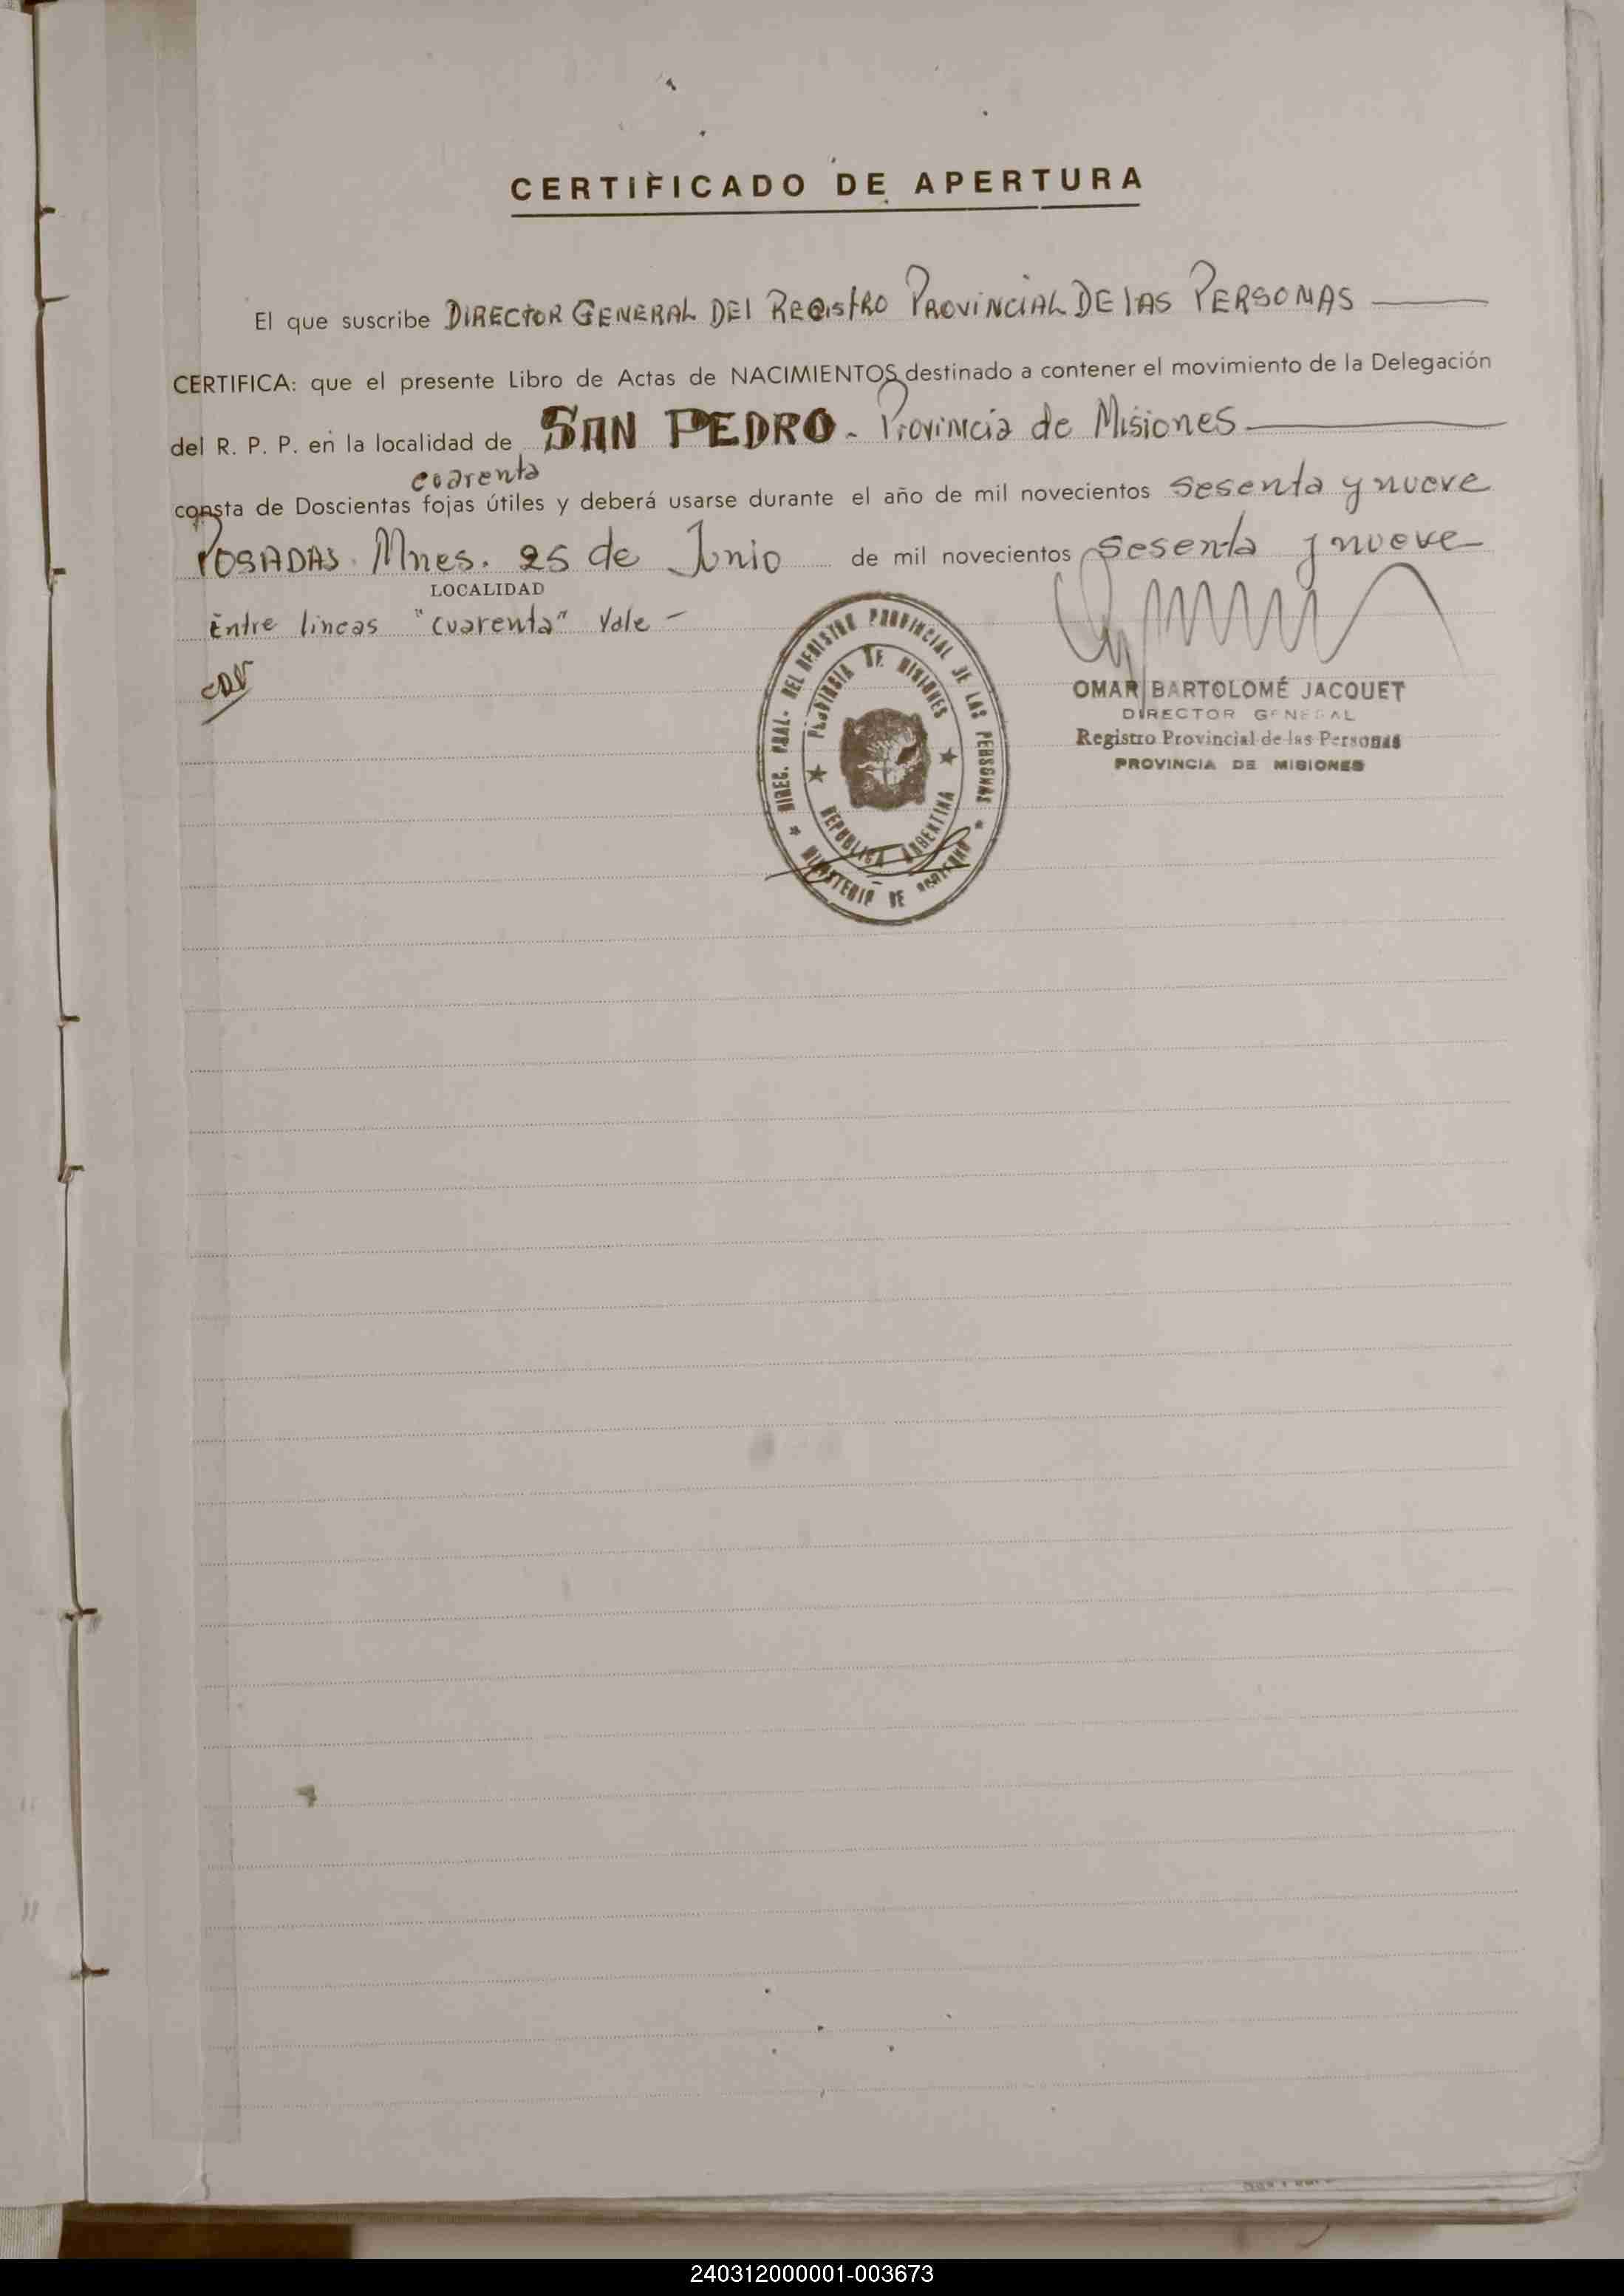 CERTIFICADO DE APERTURA
El que suscribe DIRECTOR GENERAL DEl REGistRO PROViNCIAL DE lAS PERSONAS
CERTIFICA: que el presente Libro de Actas de NACIMIENTOS destinado a contener el movimiento de la Delegación
del R. P. P. en la localidad de SAN PEDRO - Provincia de Misiones
cuarenta
consta de Doscientas fojas útiles y deberá usarse durante el año de mil novecientos sesenta y nueve
POSADAS. Mnes. 25 de Junio de mil novecientos sesenta y nueve
LOCALIDAD
Entre lineas "cuarenta" Vale -
DIREC. GRAL. DEL REGISTRO PROVINCIAL DE LAS PERSONAS
PROVINCIA DE MISIONES
REPUBLICA ARGENTINA
MINISTERIO DE GOBIERNO
OMAR BARTOLOMÉ JACQUET
DIRECTOR GENERAL
Registro Provincial de las Personas
PROVINCIA DE MISIONES
240312000001-003673